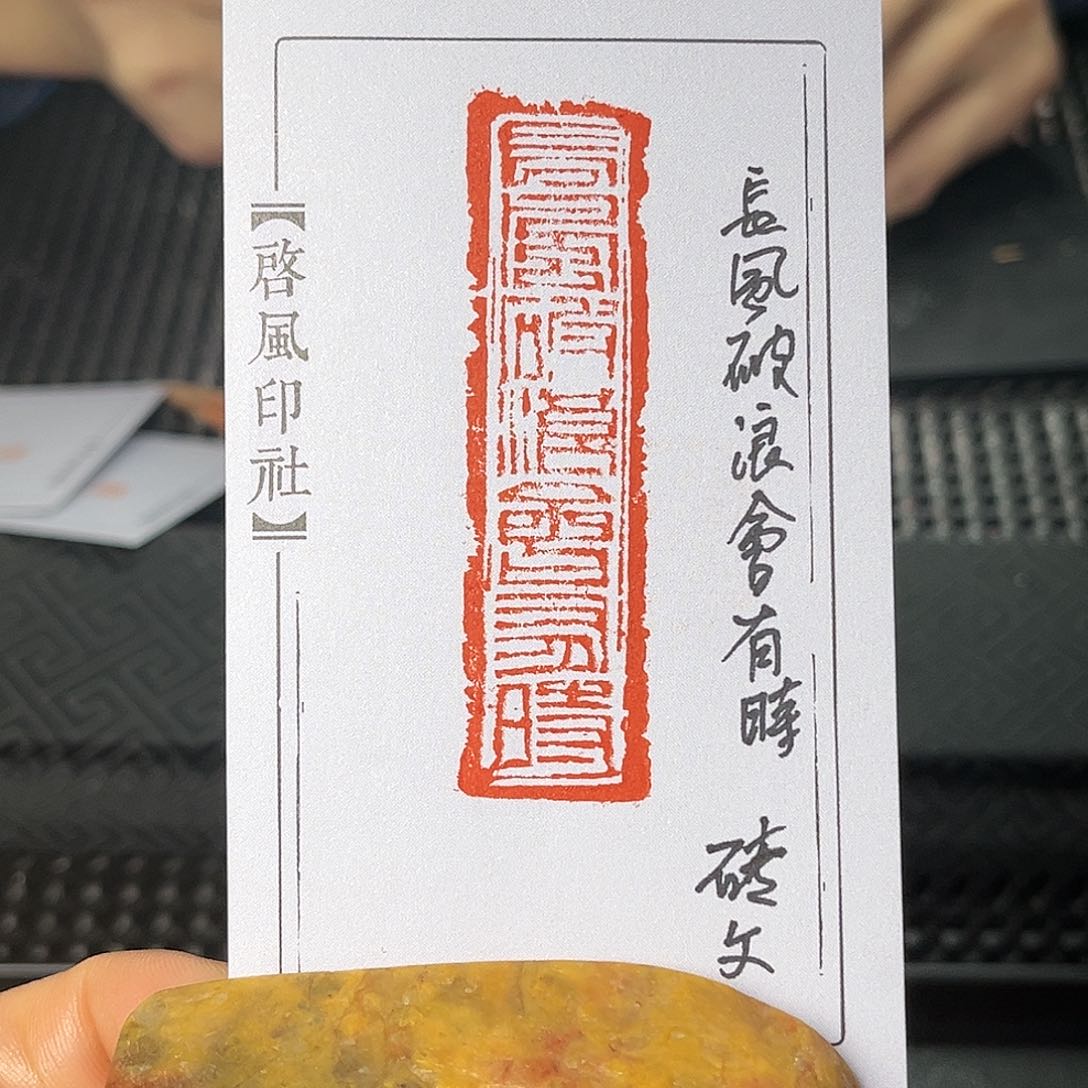 長風破浪會有時
磚文
長風破浪會有時
【啓風印社】